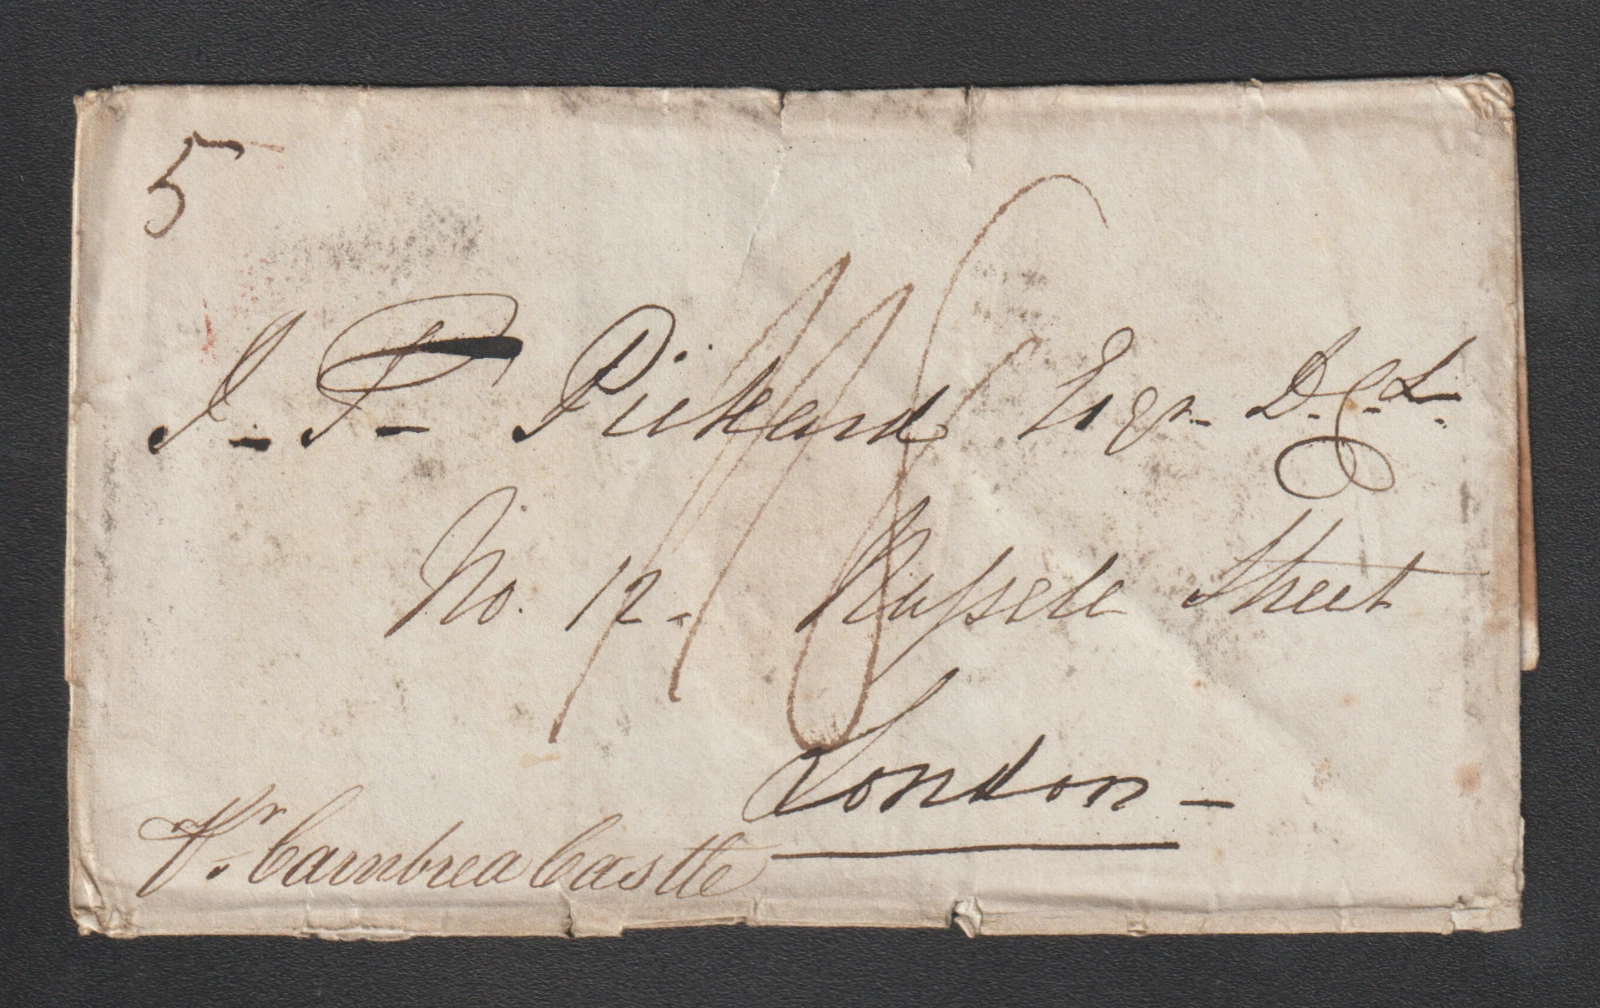 5
J. P. Pickard Esqr. D.C.L.
No. 12. Russell Street
London
Pr. Carnbrea Castle